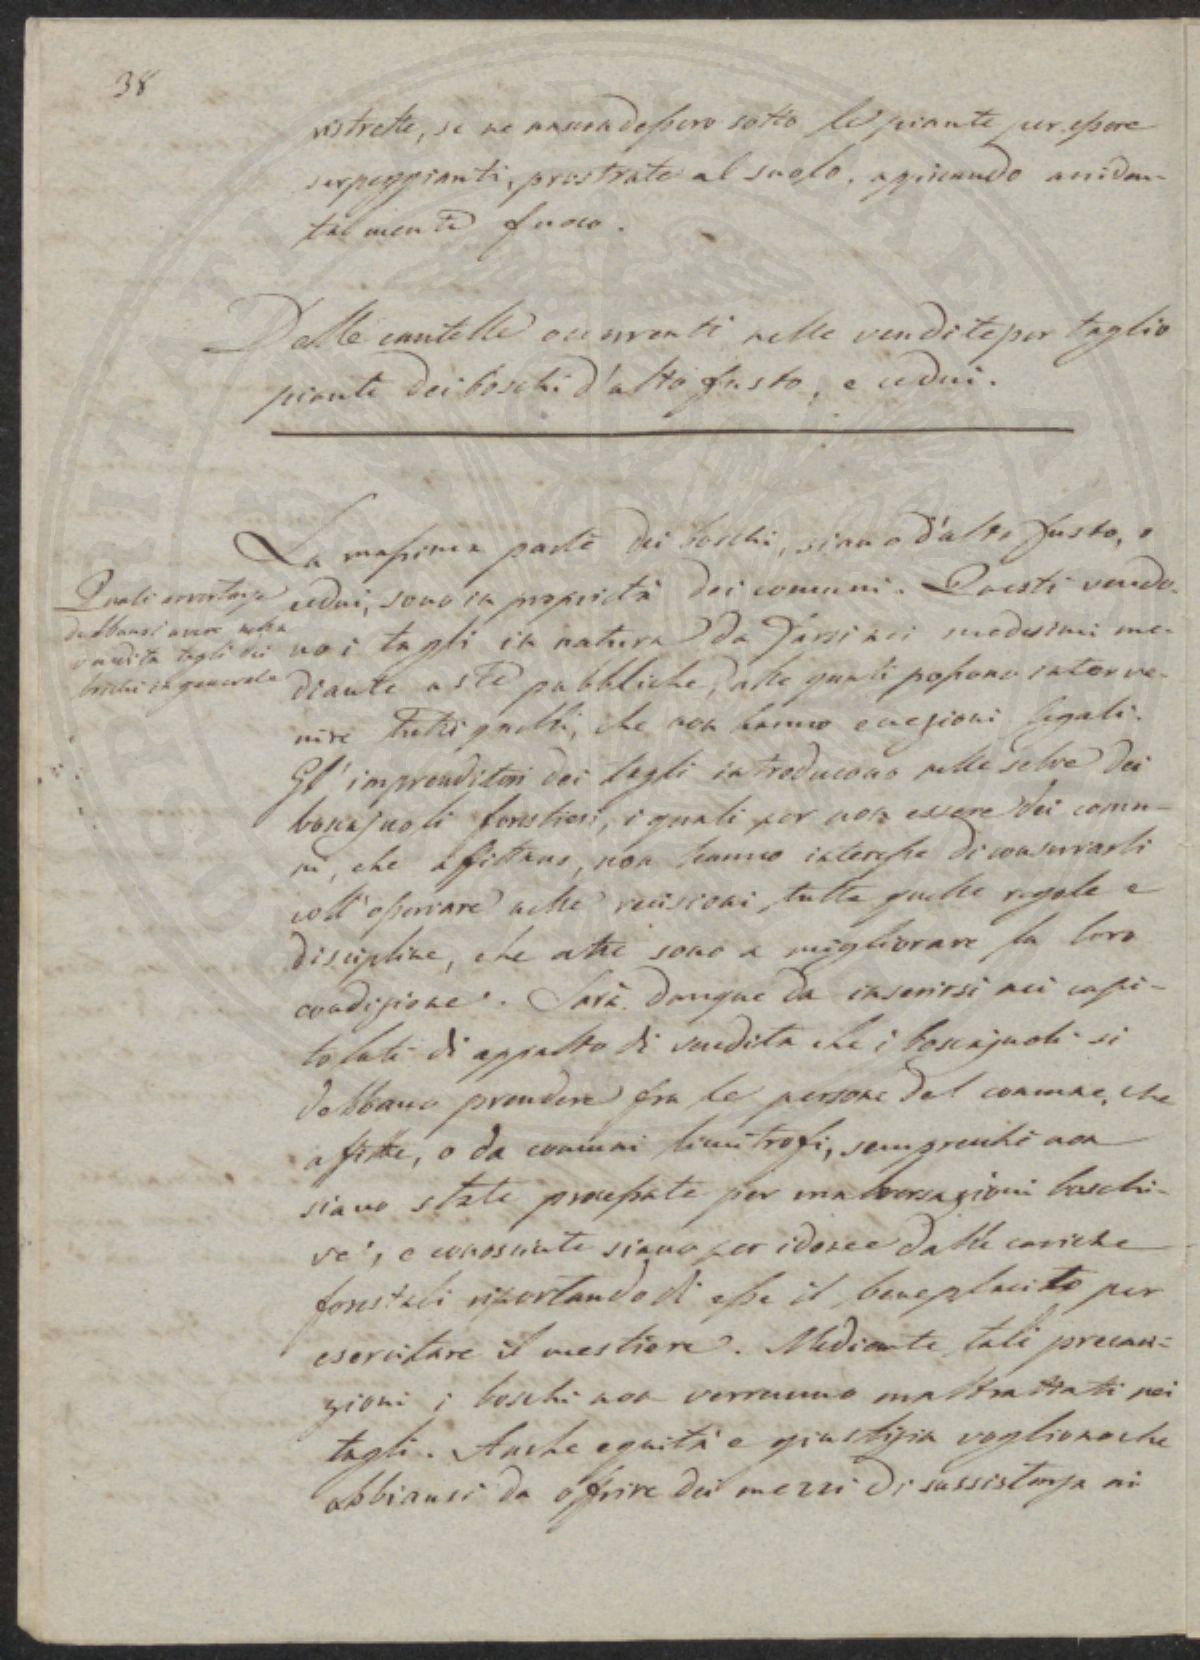 38
ristrette, se ne nascondessero sotto le piante per essere
serpeggianti, prostrate al suolo, appiccando acciden-
talmente fuoco.
Delle cautelle occorrenti nelle vendite per taglio
piante dei boschi d'alto fusto, e cedui.
La massima parte dei boschi, siano d'alto fusto, o
Quali avvertenze
debbansi avere nella
vendita tagli dei
boschi in generale
cedui, sono in proprietà dei comuni. Questi vendo-
no i tagli in natura da farsi nei medesimi me-
diante aste pubbliche, alle quali possono interve-
nire tutti quelli, che non hanno eccezioni legali.
Gl'imprenditori dei tagli introducono nelle selve dei
boscajuoli forestieri, i quali per non essere dei comu-
ni, che affittano, non hanno interesse di conservarli
coll'osservare nelle recisioni, tutte quelle regole e
discipline, che atte sono a migliorare la loro
condizione. Sarà dunque da inserirsi nei capi-
tolati di appalto di vendita che i boscajuoli si
debbano prendere fra le persone del comune, che
affitta, o da comuni limitrofi, semprechè non
siano state processate per malversazioni boschi-
ve, e conosciute siano per idonee dalle cariche
forestali riportando di esse il beneplacito per
esercitare il mestiere. Mediante tali precau-
zioni i boschi non verranno maltrattati nei
tagli. Anche equità e giustizia vogliono che
abbiansi da offrire dei mezzi di sussistenza ai